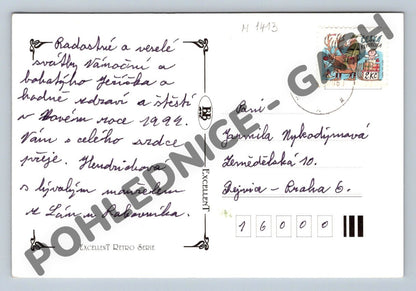 M 1413
Radostné a veselé
svátky Vánoční a
bohatýho Ježíška a
hodně zdraví a štěstí
v Novém roce 1994.
Vám z celého srdce
přeje. Hendrichova
s bývalým manželem
z Lán u Rakovníka.
EXCELLENT RETRO SERIE
EXCELLENT
Paní
Jarmila Nykodýmová
Zemědělská 10.
Dejvice - Praha 6.
1 6 0 0 0
2 Kč
POHLEDNICE - GASH